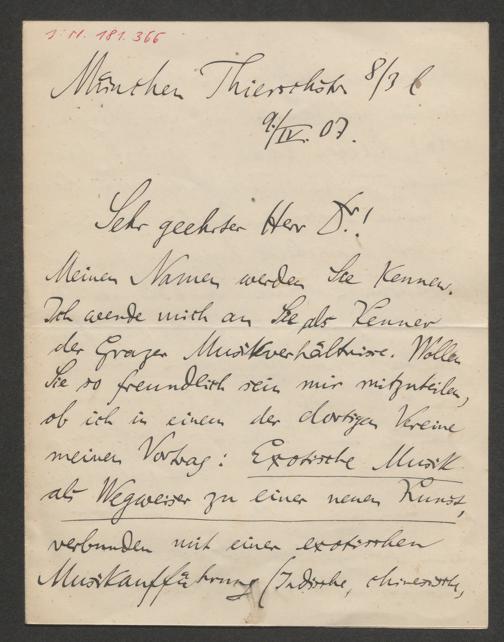 J.N. 181.366
München Thierschstr 8/3 l
9./IV. 07.
Sehr geehrter Herr Dr.!
Meinen Namen werden Sie kennen.
Ich wende mich an Sie als Kenner
der Grazer Musikverhältnisse. Wollen
Sie so freundlich sein mir mitzuteilen,
ob ich in einem der dortigen Vereine
meinen Vortrag: Exotische Musik
als Wegweiser zu einer neuen Kunst,
verbunden mit einer exotischen
Musikaufführung (Indische, chinesisch,